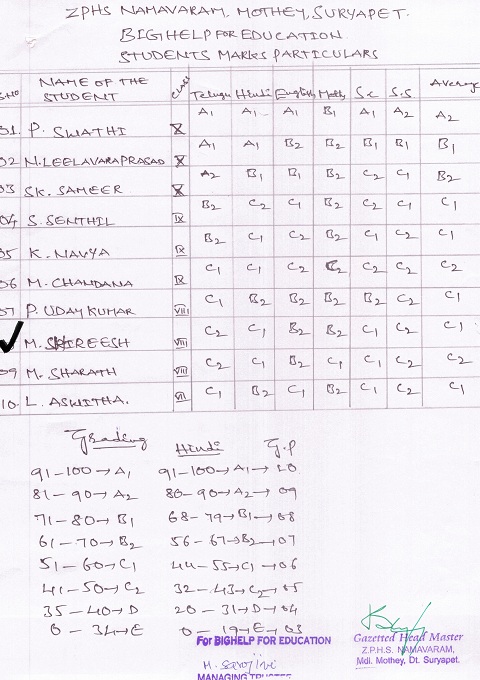 ZPHS NAMAVARAM, MOTHEY, SURYAPET.
BIGHELP FOR EDUCATION
STUDENTS MARKS PARTICULARS
S.No NAME OF THE STUDENT Class Telugu Hindi English Maths Sc S.S Average
01. P. SWATHI X A1 A1 A1 B1 A1 A2 A2
02 N. LEELAVARAPRASAD X A1 A1 B2 B2 B1 B1 B1
03 SK. SAMEER X A2 B1 B1 B2 C2 C1 B2
04 S. SENTHIL IX B2 C2 C1 B2 C2 C1 C1
05 K. NAVYA IX B2 C1 C2 B2 C1 C2 C1
06 M. CHANDANA IX C1 C1 C2 C2 C2 C2 C2
07 P. UDAY KUMAR VIII C1 B2 B2 B2 B2 C2 C1
✓ M. SHIREESH VIII C2 C1 B2 B2 C1 C2 C1
09 M. SHARATH VIII C2 C1 C2 C1 C1 C2 C2
10. L. ASWITHA. VII C1 B2 C1 B2 C1 C2 C1
Grading Hindi G.P
91-100→A1 91-100→A1→10
81-90→A2 80-90→A2→09
71-80→B1 68-79→B1→08
61-70→B2 56-67→B2→07
51-60→C1 44-55→C1→06
41-50→C2 32-43→C2→05
35-40→D 20-31→D→04
0-34→E 0-19→E→03
For BIGHELP FOR EDUCATION
M. Sarojini
MANAGING TRUSTEE
Gazetted Head Master
Z.P.H.S. NAMAVARAM,
Mdl. Mothey, Dt. Suryapet.